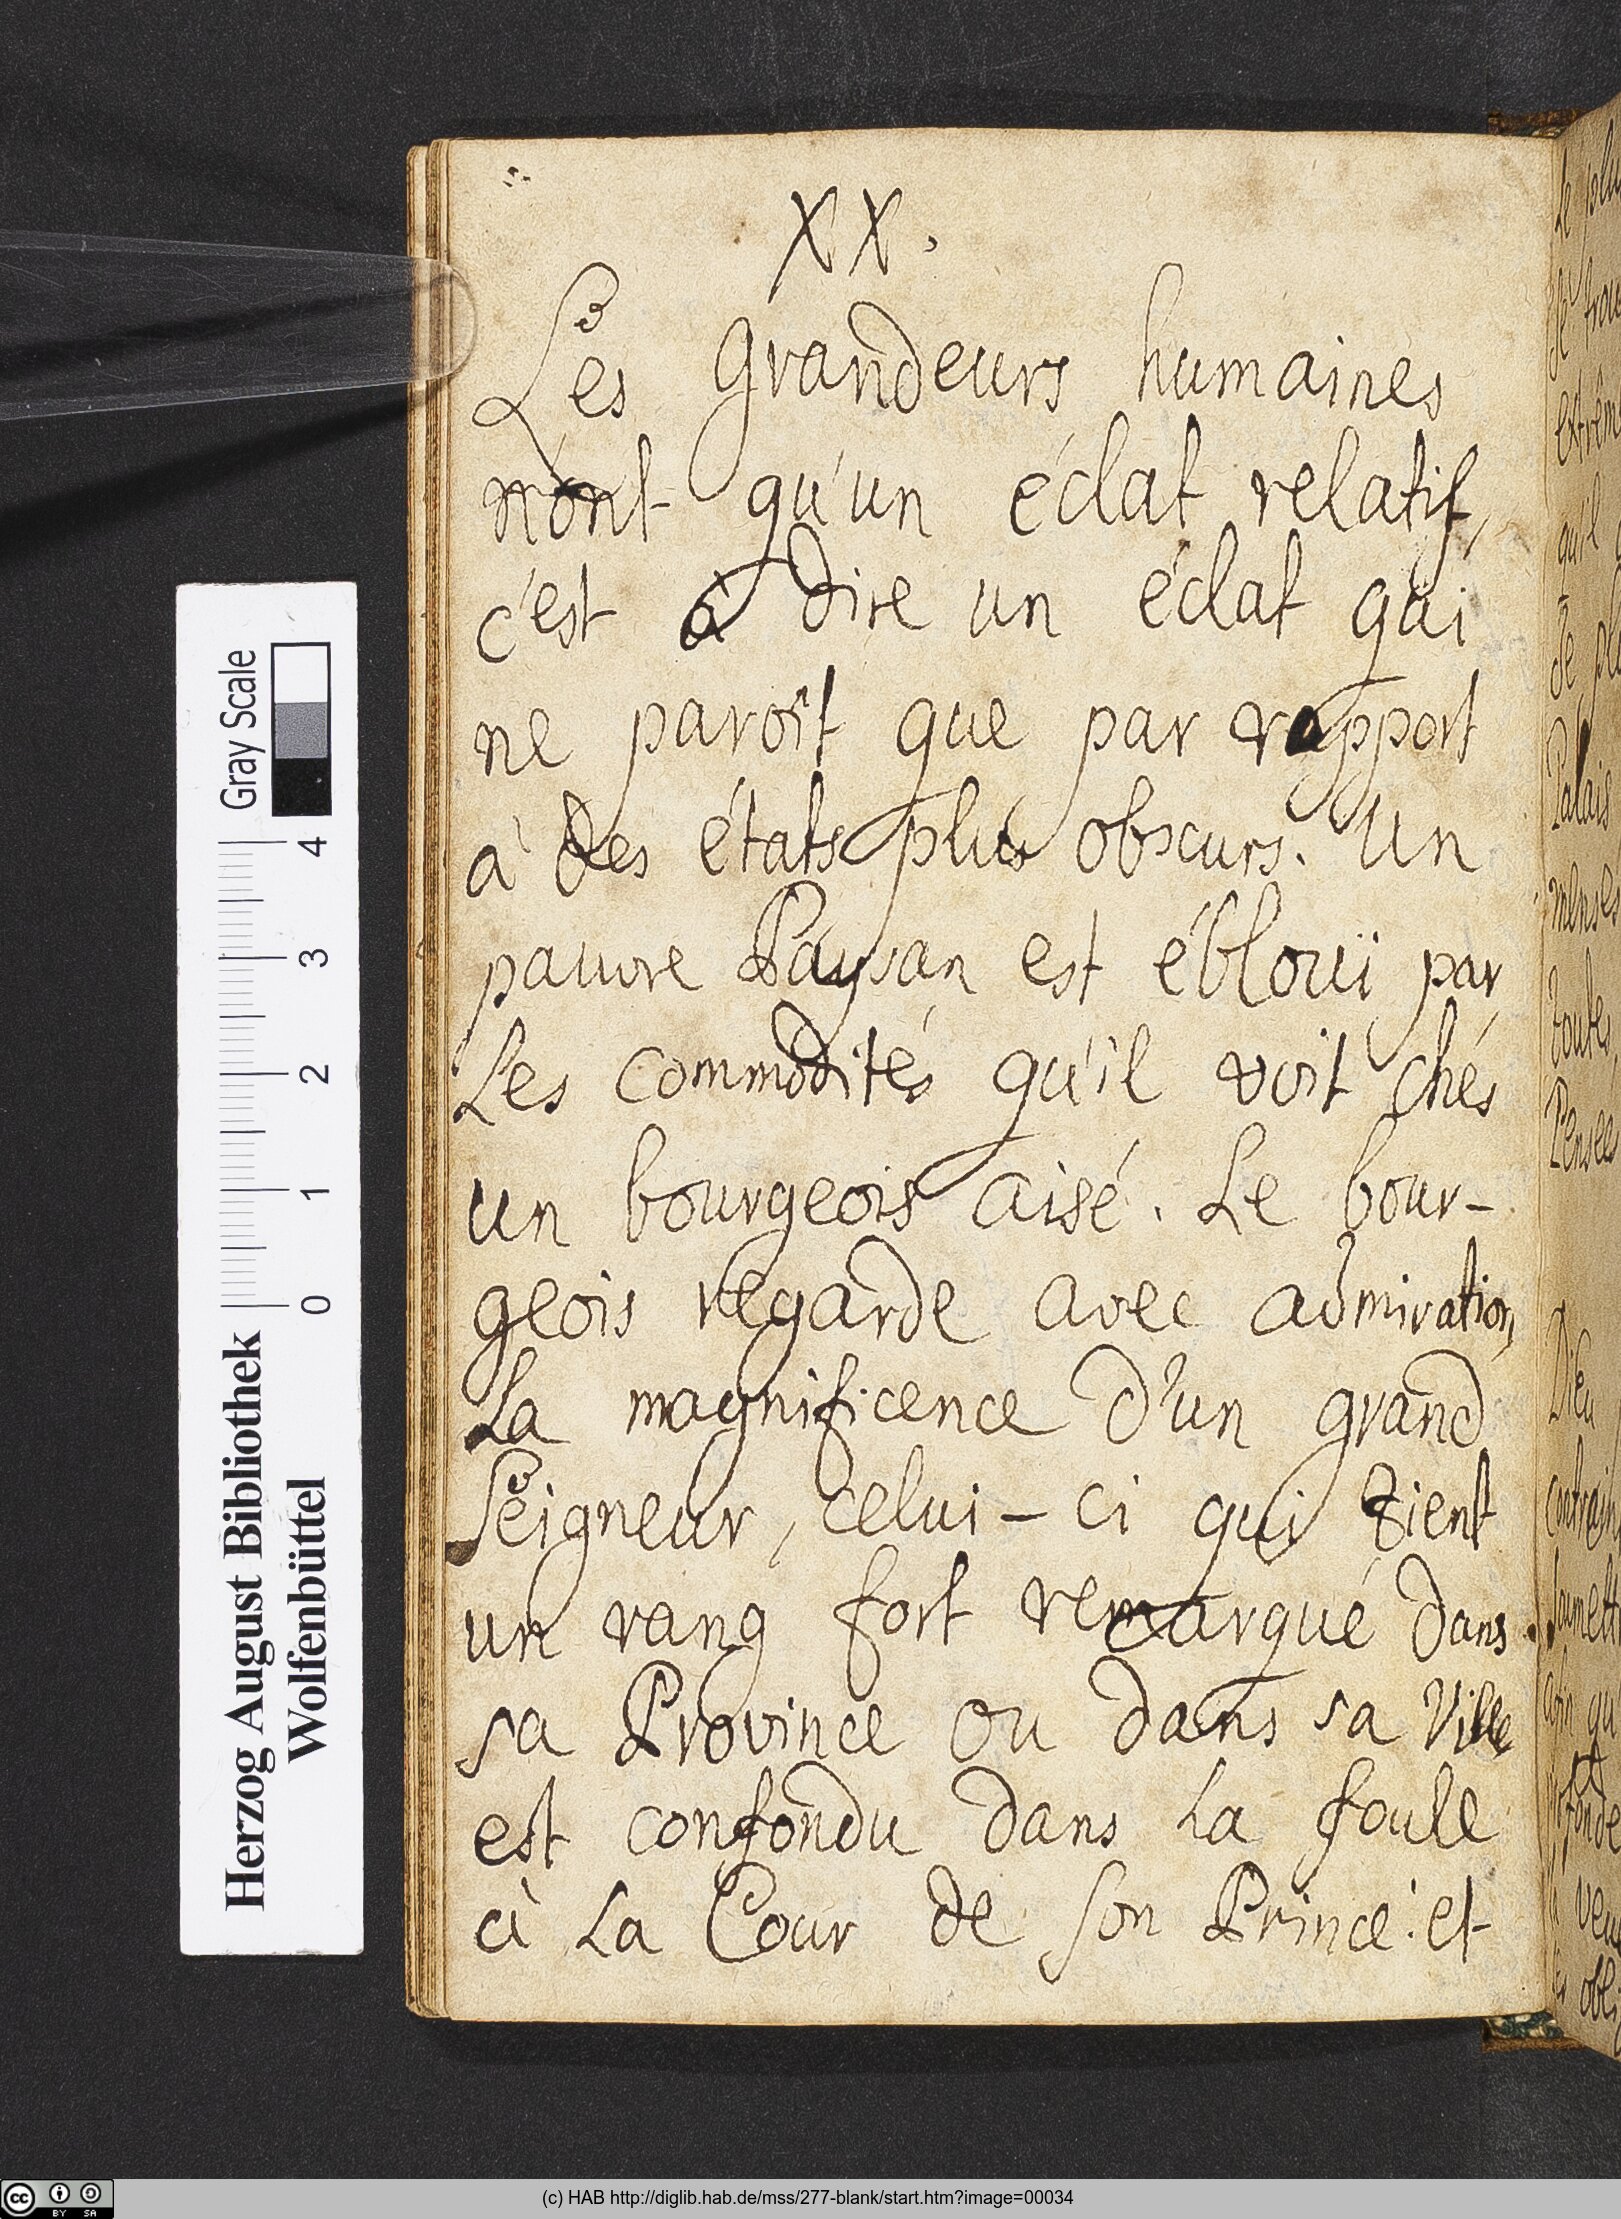 XX.
Les grandeurs humaines
n'ont qu'un éclat relatif,
c'est à dire un éclat qui
ne paroît que par rapport
à des états plus obscurs. Un
pauvre Paysan est éblouï par
Les commodités qu'il voit chés
un bourgeois aisé. Le bour-
geois regarde avec admiration,
La magnificence d'un grand
Seigneur, celui-ci qui tient
un rang fort remarqué dans
sa Province ou dans sa Ville
est confondu dans La foule
à La Cour de son Prince: et
extrême
qu'il
de
Palais
toutes
Pensées
Dieu
Gray Scale
4 3 2 1 0
Herzog August Bibliothek
Wolfenbüttel
cc BY SA
(c) HAB http://diglib.hab.de/mss/277-blank/start.htm?image=00034